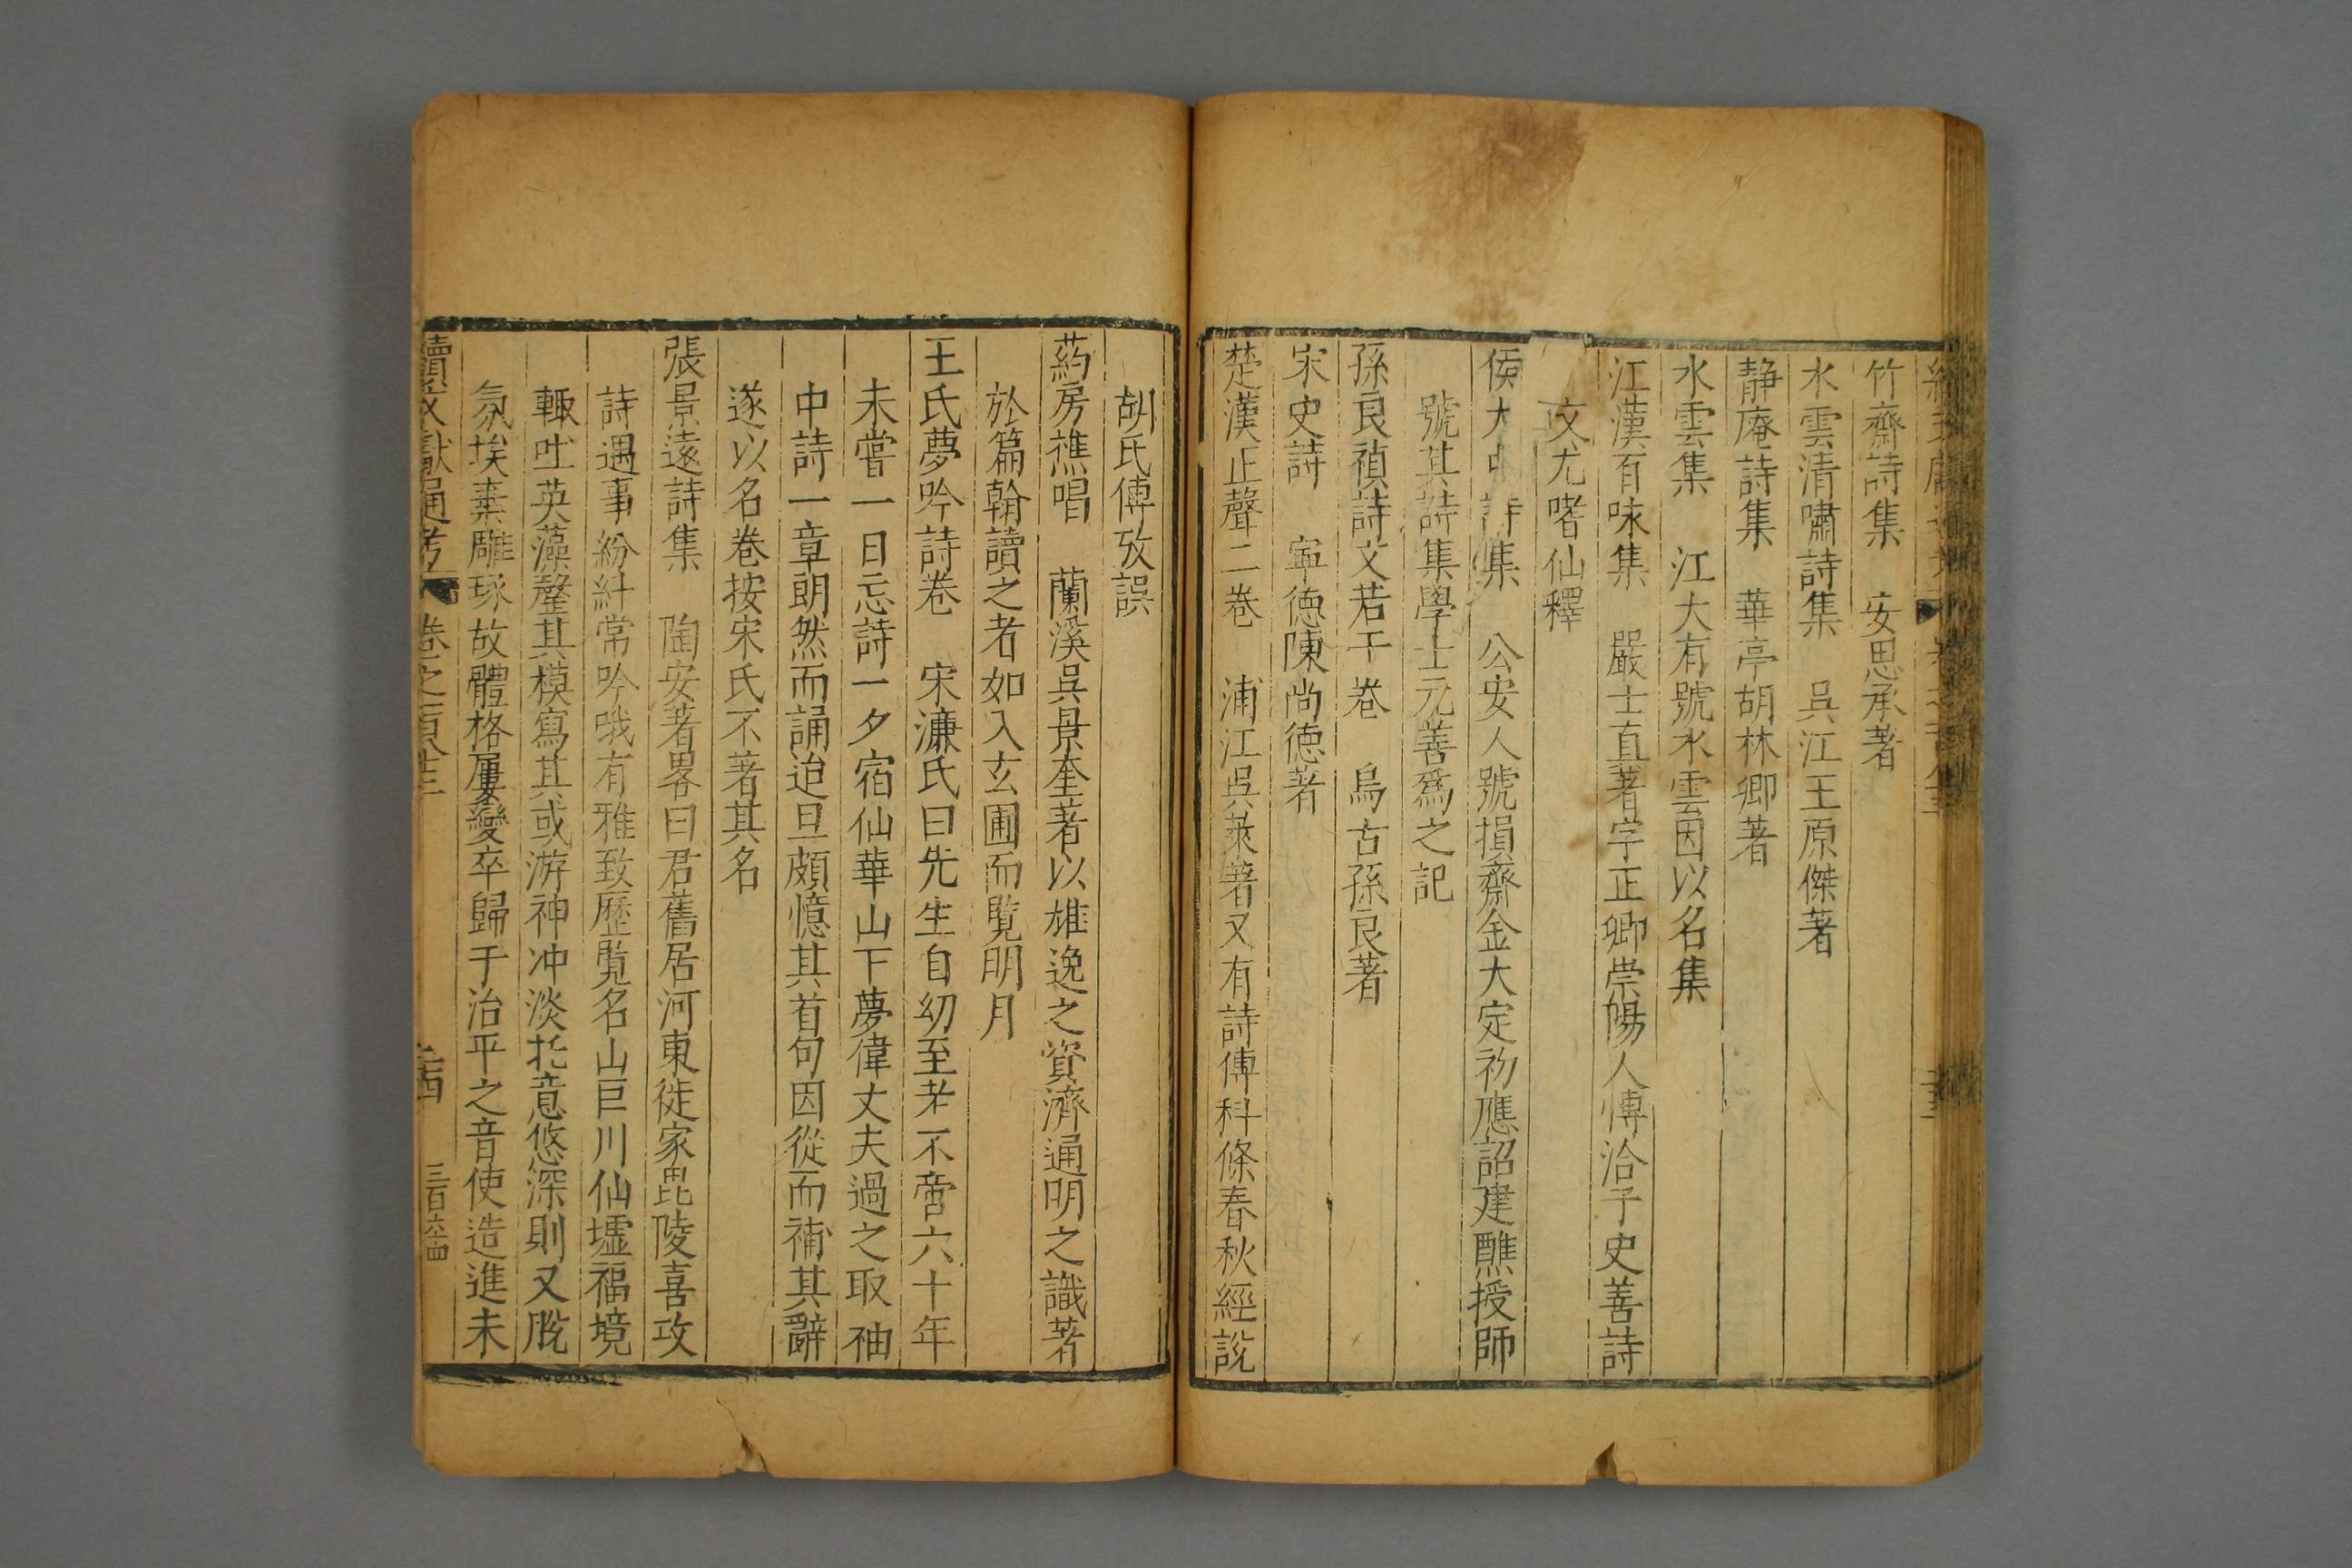 竹齋詩集　安思承著
水雲清嘯詩集　吳江王原傑著
靜庵詩集　華亭胡林卿著
水雲集　江大有號水雲因以名集
江漢百咏集　嚴士直著字正卿崇陽人博洽子史善詩
文尤嗜仙釋
侯大中詩集　公安人號損齋金大定初應詔建醮授師
號其詩集學士元善爲之記
孫良禎詩文若干卷　烏古孫良著
宋史詩　寧德陳尚德著
楚漢正聲二卷　浦江吳萊著又有詩傳科條春秋經說
胡氏傳攷誤
葯房樵唱　蘭溪吳景奎著以雄逸之資濟通明之識著
於篇翰讀之者如入玄圃而覽明月
王氏夢吟詩卷　宋濂氏曰先生自幼至老不啻六十年
未嘗一日忘詩一夕宿仙華山下夢偉丈夫過之取袖
中詩一章朗然而誦迨旦頗憶其首句因從而補其辭
遂以名卷按宋氏不著其名
張景遠詩集　陶安著畧曰君舊居河東徙家毘陵喜攻
詩遇事紛糾常吟哦有雅致歷覽名山巨川仙墟福境
輙吐英藻罄其模寫其或游神冲淡托意悠深則又厭
氛埃棄雕琢故體格屢變卒歸于治平之音使造進未
續文獻通考　卷之一百八十三
三百六十四